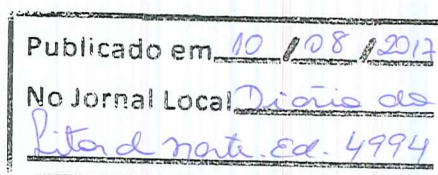 Publicado em 10 / 08 / 2017
No Jornal Local Diário do
Litoral Norte. Ed. 4994